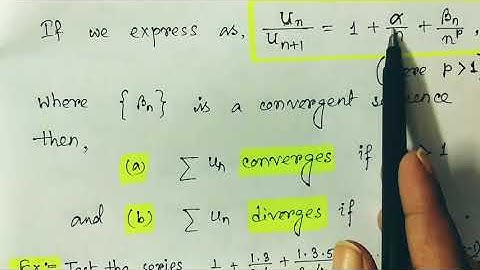 If we express as, uₙ/uₙ₊₁ = 1 + α/n + βₙ/nᵖ,
p > 1)
where {βₙ} is a convergent sequence
then,
(a) ∑ uₙ converges if > 1
and (b) ∑ uₙ diverges if
Ex:- Test the series 1/ + 1·3/ + 1·3·5/